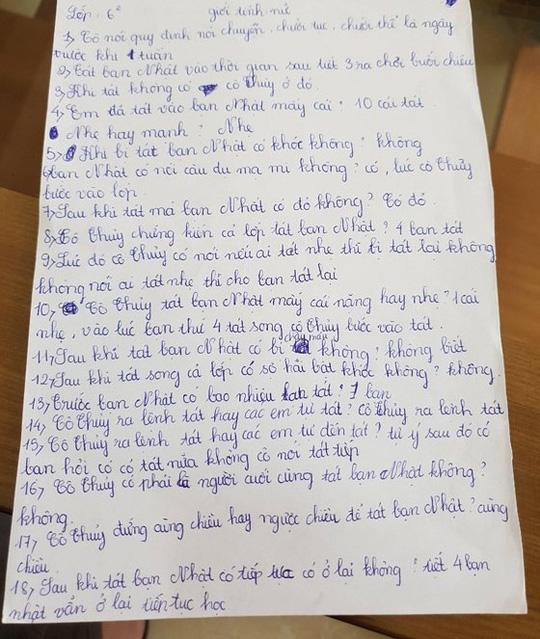 Lớp: 6² giới tính nữ
1, Cô nói quy định nói chuyện, chưởi tục, chưởi thề là ngày
trước khi 1 tuần
2, Tát bạn Nhật vào thời gian sau tiết 3 ra chơi buổi chiều
3, Khi tát không có cô Thủy ở đó.
4, Em đã tát vào bạn Nhật mấy cái? 10 cái tát
Nhẹ hay mạnh? Nhẹ
5, Khi bị tát bạn Nhật có khóc không? không
6 bạn Nhật có nói câu du ma mi không? có, lúc cô Thủy
bước vào lớp
7, Sau khi tát má bạn Nhật có đỏ không? Có đỏ
8, Cô Thủy chứng kiến cả lớp tát bạn Nhật? 4 bạn tát
9, Lúc đó cô Thủy có nói nếu ai tát nhẹ thì bị tát lại không
không nói ai tát nhẹ thì cho bạn tát lại
10, Cô Thủy tát bạn Nhật mấy cái nặng hay nhẹ? 1 cái
nhẹ, vào lúc bạn thứ 4 tát song cô Thủy bước vào tát.
11, Sau khi tát bạn Nhật có bị chảy máu không? không biết
12, Sau khi tát song cả lớp có sợ hãi bật khóc không? không.
13, Trước bạn Nhật có bao nhiêu bạn tát? 7 bạn
14, Cô Thủy ra lệnh tát hay các em tự tát? Cô Thủy ra lệnh tát
15, Cô Thủy ra lệnh tát hay các em tự đến tát? tự ý sau đó có
bạn hỏi cô có tát nữa không cô nói tát tiếp
16, Cô Thủy có phải là người cuối cùng tát bạn Nhật không?
không.
17, Cô Thủy đứng cùng chiều hay ngược chiều để tát bạn Nhật? cùng
chiều
18, Sau khi tát bạn Nhật có tiếp tục có ở lại không? tiết 4 bạn
nhật vẫn ở lại tiếp tục học